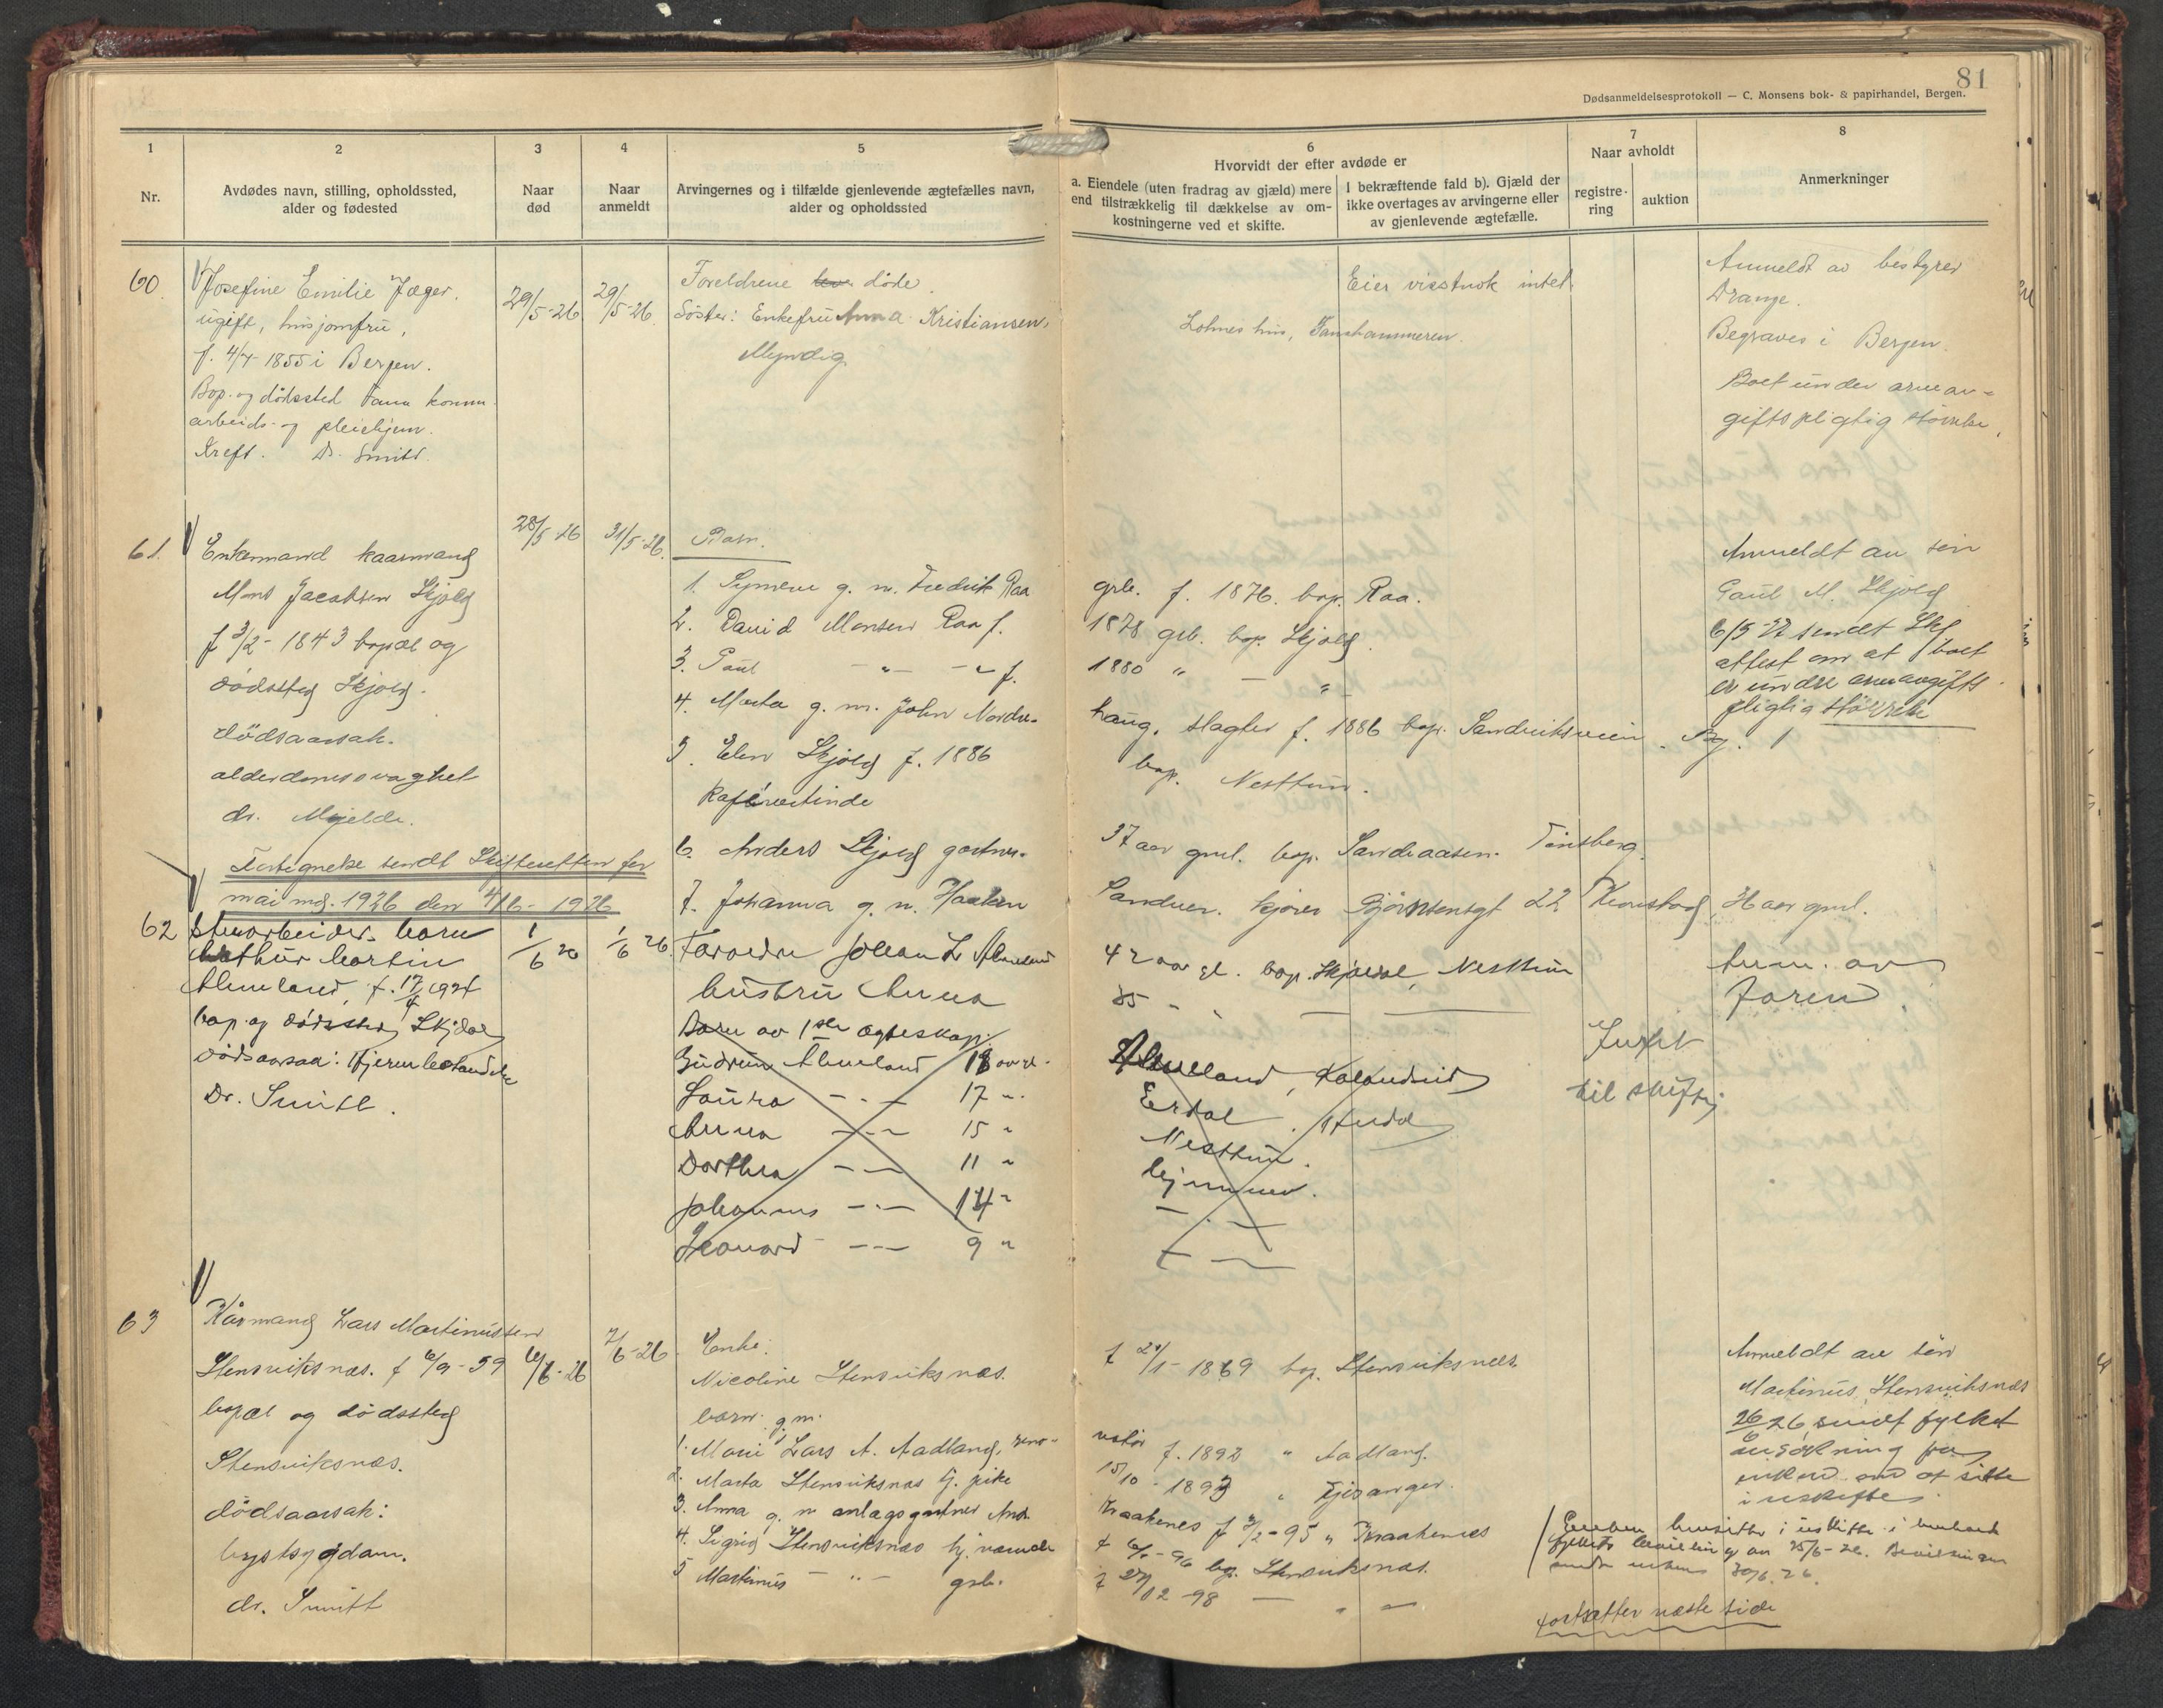 81
Dødsanmeldelsesprotokoll — C. Monsens bok- & papirhandel, Bergen.
1
2
3
4
5
6
7
8
Nr.
Avdødes navn, stilling, opholdssted,
alder og fødested
Naar
død
Naar
anmeldt
Arvingernes og i tilfælde gjenlevende ægtefælles navn,
alder og opholdssted
Hvorvidt der efter avdøde er
a. Eiendele (uten fradrag av gjæld) mere
end tilstrækkelig til dækkelse av om-
kostningerne ved et skifte.
I bekræftende fald b). Gjæld der
ikke overtages av arvingerne eller
av gjenlevende ægtefælle.
Naar avholdt
registre-
ring
auktion
Anmerkninger
60.
Josefine Emilie Jæger.
ugift, husjomfru,
f. 4/4 1855 i Bergen.
Bop. og dödssted Fana komm.
arbeids- og pleiehjem.
Kreft. Dr. Smitt.
29/5-26
29/5-26.
Foreldrene leve döde.
Söster: Enkefru Anna Kristiansen,
Myndig
Eier visstnok intet.
Lohnes hus, Fanahammeren.
Anmeldt av bestyrer
Drange.
Begraves i Bergen.
Boet under arveav-
giftspligtig störrelse.
61.
Enkemand kaarmand
Mons Jacobsen Skjold
f 3/2-1843 bopæl og
dödssted Skjold.
dödsaarsak.
alderdomssvaghet
dr. Mjelde.
28/5-26
31/5-26.
Barn.
1. Symene g. m. Fredrik Raa
grb. f. 1876. bop. Raa.
2. David Monsen Raa f.
1878 grb. bop. Skjold.
3. Paul - " - - " f.
1880 " — "
4. Marta g. m. John Nordre-
haug, slagter f. 1886 bop. Sandviksveien. Bg. 1
5. Elen Skjold f. 1886
bop. Nesttun.
Kafévertinde
6. Anders Skjold gartner.
37 aar gml. bop. Sandeaasen. Tönsberg.
7. Johanna g. m. Haakon
Sandven. kjører Björnsensgt 22 Kronstad,
Anmeldt av sön
Paul M. Skjold
6/5 27 sendt Skj
attest om at boet
er under arveavgifts
pligtig störrelse
Fortegnelse sendt Skifteretten for
mai md. 1926 den 4/6-1926
62
Stenarbeiders barn
Arthur Martin
Almeland, f. 17/4 1924
bop. og dödssted Skjold
Dödsaarsak: Hjernebetændelse
Dr. Smitt.
1/6 26
1/6 26.
Foreldre Johan L. Almeland
42 aar gl. bop. Skjold, Nesttun
hustru Anna
35 - " —
Barn av 1ste ægteskap:
Gudrun Almeland 18 aar gl.
Almeland, Kalandseid
Laura — " — 17 "
Erdal. Askedal
Anna — " — 15 "
Nesttun.
Dorthea — " — 11 "
hjemme.
Johannes — " — 14 "
— " —
Leonard — " — 9 "
— " —
Intet
til skifte
Anm. av
faren.
63
Kårmand Lars Martinussen
Stensviksnes. f 6/9-59
bopæl og dödssted
Stensviksnes.
dödsaarsak:
brystsygdom.
dr. Smitt
6/6-26
7/6-26
Enke:
Nicoline Stensviksnes.
f 24/1-1869 bop. Stensviksnes.
barn:
1. Marie g.m. Lars A. Aadland, reno-
vatör f. 1892 " Aadland.
2. Marta Stensviksnes tj. pike
15/10-1893 " Fjösanger.
3. Anna g. m anlægsgartner And.
Kraakenes f 3/2-95 " Kraakenes
4. Sigrid Stensviksnes hj. værende
bop. Stensviksnes.
5 Martinus — " — grb.
f 27/12-98 — " —
Anmeldt av sön
Martinus Stensviksnes
26/6 26 sendt fylket
ansökning fra
enken om at sitte
i uskifte.
Enken hensitter i uskifte i henhold
fylkets bevilling av 25/6-26. Bevillingen
sendt enken 30/6.26.
fortsætter næste side